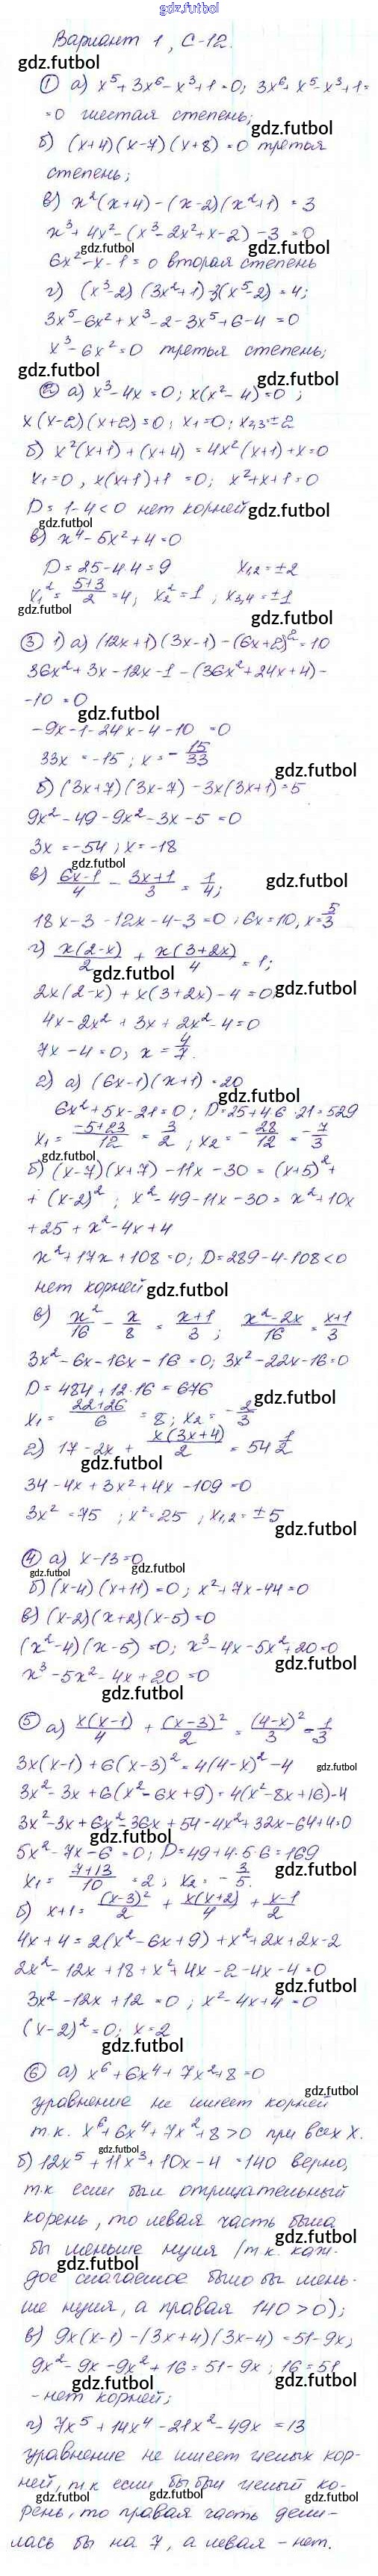 gdz.futbol
Вариант 1, С-12.
gdz.futbol
① а) x⁵+3x⁶-x³+1=0; 3x⁶+x⁵-x³+1=
=0 шестая степень;
gdz.futbol
б) (x+4)(x-7)(x+8)=0 третья
степень;
в) x²(x+4)-(x-2)(x²+1)=3
x³+4x²-(x³-2x²+x-2)-3=0
gdz.futbol gdz.futbol
6x²-x-1=0 вторая степень
г) (x³-2)(3x²+1)-3(x⁵-2)=4;
3x⁵-6x²+x³-2-3x⁵+6-4=0
x³-6x²=0 третья степень;
gdz.futbol gdz.futbol
② а) x³-4x=0; x(x²-4)=0;
x(x-2)(x+2)=0; x₁=0; x₂,₃=±2
б) x²(x+1)+(x+4)=4x²(x+1)+x=0
x₁=0, x(x+1)+1=0; x²+x+1=0
D=1-4<0 нет корней
gdz.futbol
gdz.futbol
в) x⁴-5x²+4=0
D=25-4·4=9 x₁,₂=±2
x₁²=(5+3)/2=4; x₂²=1; x₃,₄=±1
gdz.futbol
gdz.futbol
③ 1) а) (12x+1)(3x-1)-(6x+2)²=10
36x²+3x-12x-1-(36x²+24x+4)-
-10=0
gdz.futbol
-9x-1-24x-4-10=0
33x=-15; x=-15/33
gdz.futbol
б) (3x+7)(3x-7)-3x(3x+1)=5
9x²-49-9x²-3x-5=0
3x=-54; x=-18
gdz.futbol
в) (6x-1)/4-(3x+1)/3=1/4;
gdz.futbol
18x-3-12x-4-3=0; 6x=10, x=5/3
г) x(2-x)/2+x(3+2x)/4=1;
gdz.futbol
2x(2-x)+x(3+2x)-4=0;
gdz.futbol
4x-2x²+3x+2x²-4=0
7x-4=0; x=4/7.
2) а) (6x-1)(x+1)=20
gdz.futbol
6x²+5x-21=0; D=25+4·6·21=529
x₁=(-5+23)/12=3/2; x₂=-28/12=-7/3
gdz.futbol
б) (x-7)(x+7)-11x-30=(x+5)²+
+(x-2)²; x²-49-11x-30=x²+10x
+25+x²-4x+4
x²+17x+108=0; D=289-4·108<0
нет корней
gdz.futbol
в) x²/16-x/8=(x+1)/3; (x²-2x)/16=(x+1)/3
3x²-6x-16x-16=0; 3x²-22x-16=0
D=484+12·16=676
gdz.futbol
x₁=(22+26)/6=8; x₂=-2/3
г) 17-2x+x(3x+4)/2=54 1/2
gdz.futbol
34-4x+3x²+4x-109=0
3x²=75; x²=25; x₁,₂=±5
gdz.futbol
④ а) x-13=0
gdz.futbol gdz.futbol
б) (x-4)(x+11)=0; x²+7x-44=0
в) (x-2)(x+2)(x-5)=0
(x²-4)(x-5)=0; x³-4x-5x²+20=0
gdz.futbol
x³-5x²-4x+20=0
gdz.futbol
⑤ а) x(x-1)/4+(x-3)²/2=(4-x)²/3-1/3
3x(x-1)+6(x-3)²=4(4-x)²-4
gdz.futbol
3x²-3x+6(x²-6x+9)=4(x²-8x+16)-4
3x²-3x+6x²-36x+54-4x²+32x-64+4=0
gdz.futbol
5x²-7x-6=0; D=49+4·5·6=169
gdz.futbol
x₁=(7+13)/10=2; x₂=-3/5.
б) x+1=(x-3)²/2+x(x+2)/4+(x-1)/2
4x+4=2(x²-6x+9)+x²+2x+2x-2
2x²-12x+18+x²+4x-2-4x-4=0
gdz.futbol
3x²-12x+12=0; x²-4x+4=0
(x-2)²=0; x=2
gdz.futbol
⑥ а) x⁶+6x⁴+7x²+8=0
gdz.futbol
уравнение не имеет корней
т.к. x⁶+6x⁴+7x²+8>0 при всех x.
gdz.futbol
б) 12x⁵+11x³+10x-4=140 верно,
т.к если был отрицательный
корень, то левая часть была
gdz.futbol
бы меньше нуля (т.к. каж-
gdz.futbol
дое слагаемое было бы мень-
ше нуля, а правая 140>0);
в) 9x(x-1)-(3x+4)(3x-4)=51-9x;
9x²-9x-9x²+16=51-9x; 16=51
gdz.futbol gdz.futbol
-нет корней;
г) 7x⁵+14x⁴-21x²-49x=13
уравнение не имеет целых кор-
ней, т.к если бы был целый ко-
gdz.futbol gdz.futbol gdz.futbol
рень, то правая часть дели-
лась бы на 7, а левая - нет.